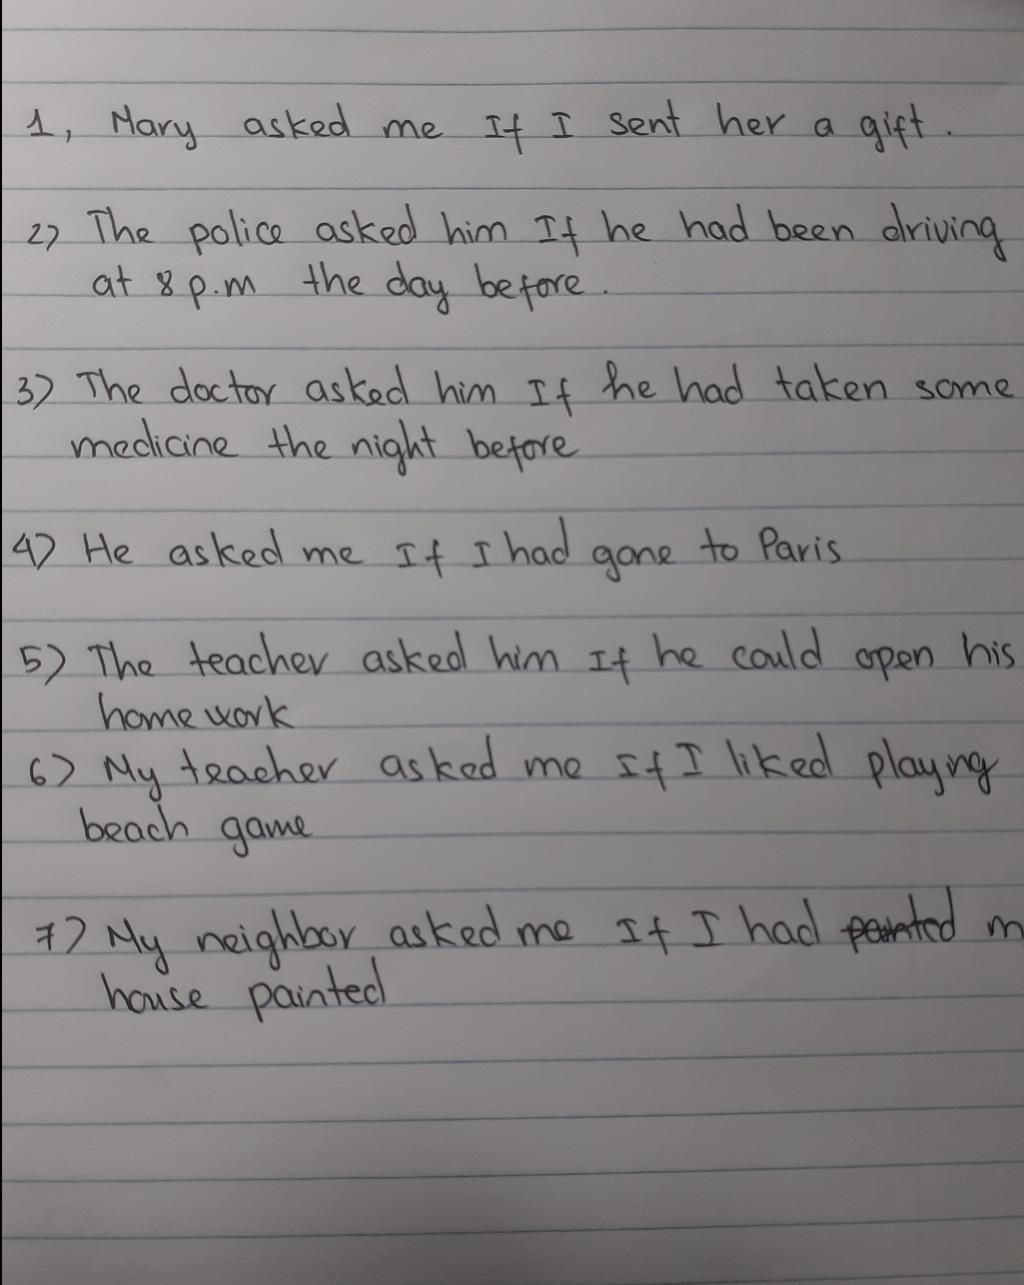 1, Mary asked me If I sent her a gift.
2) The police asked him If he had been driving
at 8 p.m the day before.
3) The doctor asked him If he had taken some
medicine the night before
4) He asked me If I had gone to Paris
5) The teacher asked him If he could open his
homework
6) My teacher asked me If I liked playing
beach game
7) My neighbor asked me If I had painted m
house painted